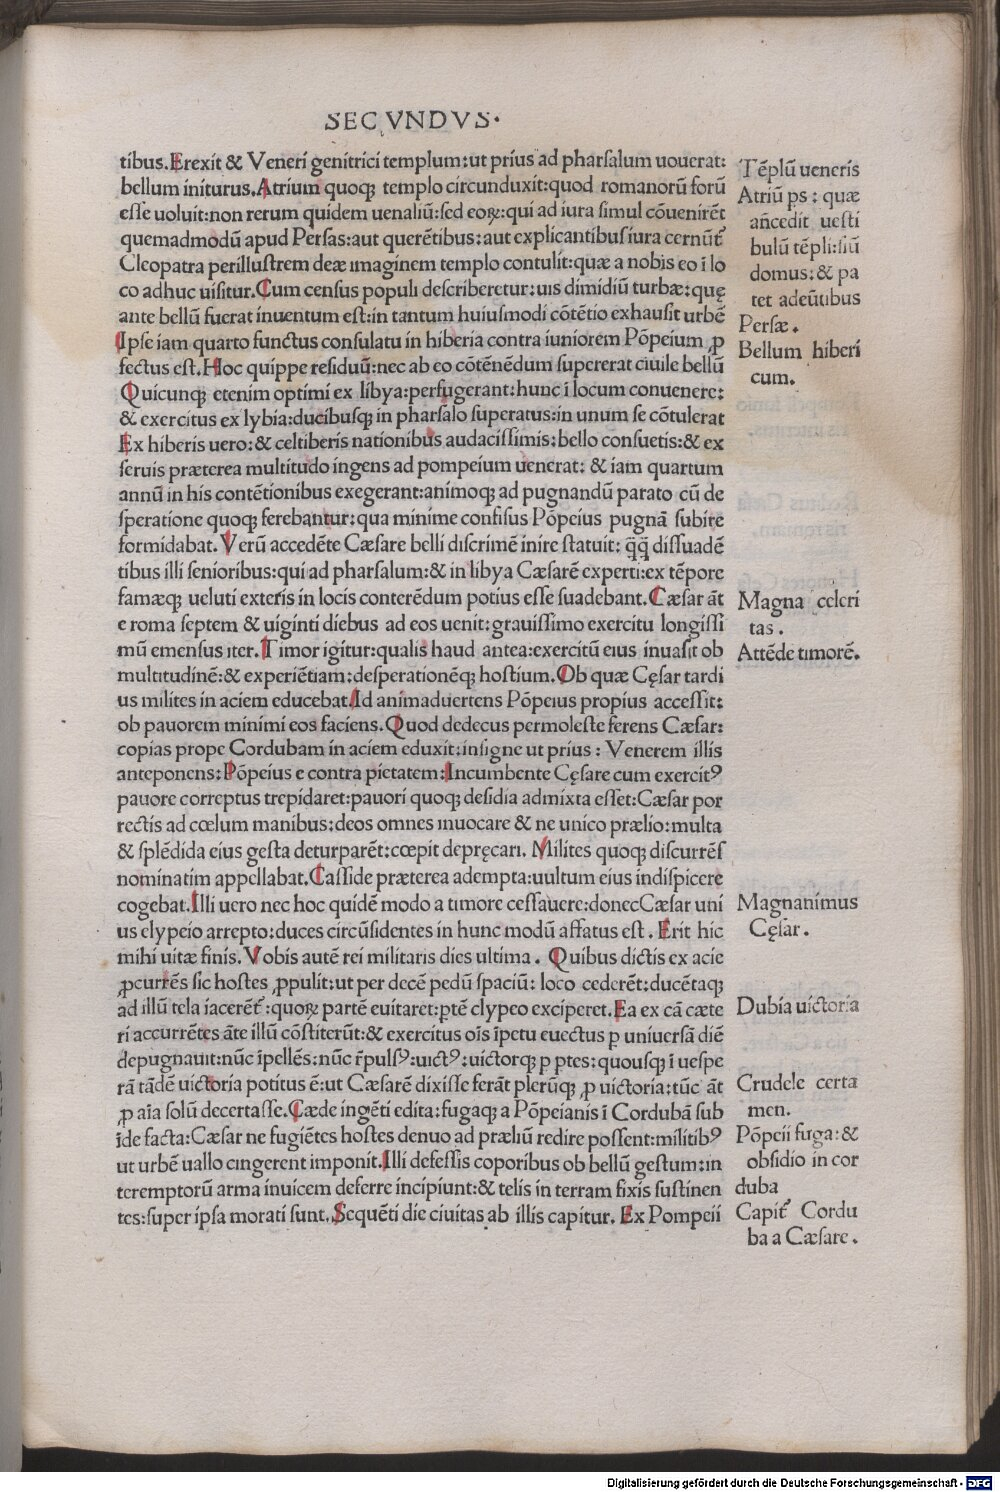 SECVNDVS.
tibus. Erexit & Veneri genitrici templum: ut prius ad pharſalum uouerat:
bellum initurus. Atrium quoqꝫ templo circunduxit: quod romanorũ forũ
eſſe uoluit: non rerum quidem uenaliũ: ſed eoꝝ: qui ad iura ſimul cõuenirẽt
quemadmodũ apud Perſas: aut querẽtibus: aut explicantibus iura cernũt᷑
Cleopatra perilluſtrem deæ imaginem templo contulit: quæ a nobis eo ĩ lo
co adhuc uiſitur. Cum cenſus populi deſcriberetur: uis dimidiũ turbæ: quę
ante bellũ fuerat inuentum eſt: in tantum huiuſmodi cõtẽtio exhauſit urbẽ
Ipſe iam quarto functus conſulatu in hiberia contra iuniorem Põpeium ꝓ
fectus eſt. Hoc quippe reſiduũ: nec ab eo cõtẽnẽdum ſupererat ciuile bellũ
Quicunqꝫ etenim optimi ex libya: perfugerant: hunc ĩ locum conuenere:
& exercitus ex lybia: ducibuſqꝫ in pharſalo ſuperatus: in unum ſe cõtulerat
Ex hiberis uero: & celtiberis nationibus audaciſſimis: bello conſuetis: & ex
ſeruis præterea multitudo ingens ad pompeium uenerat: & iam quartum
annũ in his contẽtionibus exegerant: animoqꝫ ad pugnandũ parato cũ de
ſperatione quoqꝫ ferebantur: qua minime confiſus Põpeius pugnã ſubire
formidabat. Verũ accedẽte Cæſare belli diſcrimẽ inire ſtatuit: q̃q̃ diſſuadẽ
tibus illi ſenioribus: qui ad pharſalum: & in libya Cæſarẽ experti: ex tẽpore
famæqꝫ ueluti exteris in locis conterẽdum potius eſſe ſuadebant. Cæſar ãt
e roma ſeptem & uiginti diebus ad eos uenit: grauiſſimo exercitu longiſſi
mũ emenſus iter. Timor igitur: qualis haud antea: exercitũ eius inuaſit ob
multitudinẽ: & experiẽtiam: deſperationẽqꝫ hoſtium. Ob quæ Cęſar tardi
us milites in aciem educebat. Id animaduertens Põpeius propius acceſſit:
ob pauorem minimi eos faciens. Quod dedecus permoleſte ferens Cæſar:
copias prope Cordubam in aciem eduxit: inſigne ut prius: Venerem illis
anteponens: Põpeius e contra pietatem: Incumbente Cęſare cum exercitꝰ
pauore correptus trepidaret: pauori quoqꝫ deſidia admixta eſſet: Cæſar por
rectis ad cœlum manibus: deos omnes inuocare & ne unico prælio: multa
& ſplẽdida eius geſta deturparẽt: cœpit depręcari. Milites quoqꝫ diſcurrẽſ
nominatim appellabat. Caſſide præterea adempta: uultum eius indiſpicere
cogebat. Illi uero nec hoc quidẽ modo a timore ceſſauere: donec Cæſar uni
us clypeio arrepto: duces circũſidentes in hunc modũ affatus eſt. Erit hic
mihi uitæ finis. Vobis autẽ rei militaris dies ultima. Quibus dictis ex acie
ꝓcurrẽs ſic hoſtes ꝓpulit: ut per decẽ pedũ ſpaciũ: loco cederẽt: ducẽtaqꝫ
ad illũ tela iacerẽt᷑: quoꝝ partẽ euitaret: ꝑtẽ clypeo exciperet. Ea ex cã cæte
ri accurrẽtes ãte illũ cõſtiterũt: & exercitus oĩs ĩpetu euectus ꝑ uniuerſã diẽ
depugnauit: nũc ĩpellẽs: nũc r̃pulſꝰ: uictꝰ: uictorqꝫ ꝑ ꝑtes: quouſqꝫ ĩ ueſpe
rã tãdẽ uictoria potitus ẽ: ut Cæſarẽ dixiſſe ferãt plerũqꝫ ꝓ uictoria: tũc ãt
ꝓ aĩa ſolũ decertaſſe. Cæde ingẽti edita: fugaqꝫ a Põpeianis ĩ Cordubã ſub
ĩde facta: Cæſar ne fugiẽtes hoſtes denuo ad præliũ redire poſſent: militibꝰ
ut urbẽ uallo cingerent imponit. Illi defeſſis coporibus ob bellũ geſtum: in
teremptorũ arma inuicem deferre incipiunt: & telis in terram fixis ſuſtinen
tes: ſuper ipſa morati ſunt. Sequẽti die ciuitas ab illis capitur. Ex Pompeii
Tẽplũ ueneris
Atriũ ps: quæ
añcedit ueſti
bulũ tẽpli: ſiũ
domus: & pa
tet adeũtibus
Perſæ.
Bellum hiberi
cum.
Magna celeri
tas.
Attẽde timorẽ.
Magnanimus
Cęſar.
Dubia uictoria
Crudele certa
men.
Põpeii fuga: &
obſidio in cor
duba
Capit᷑ Cordu
ba a Cæſare.
Digitalisierung gefördert durch die Deutsche Forschungsgemeinschaft - DFG